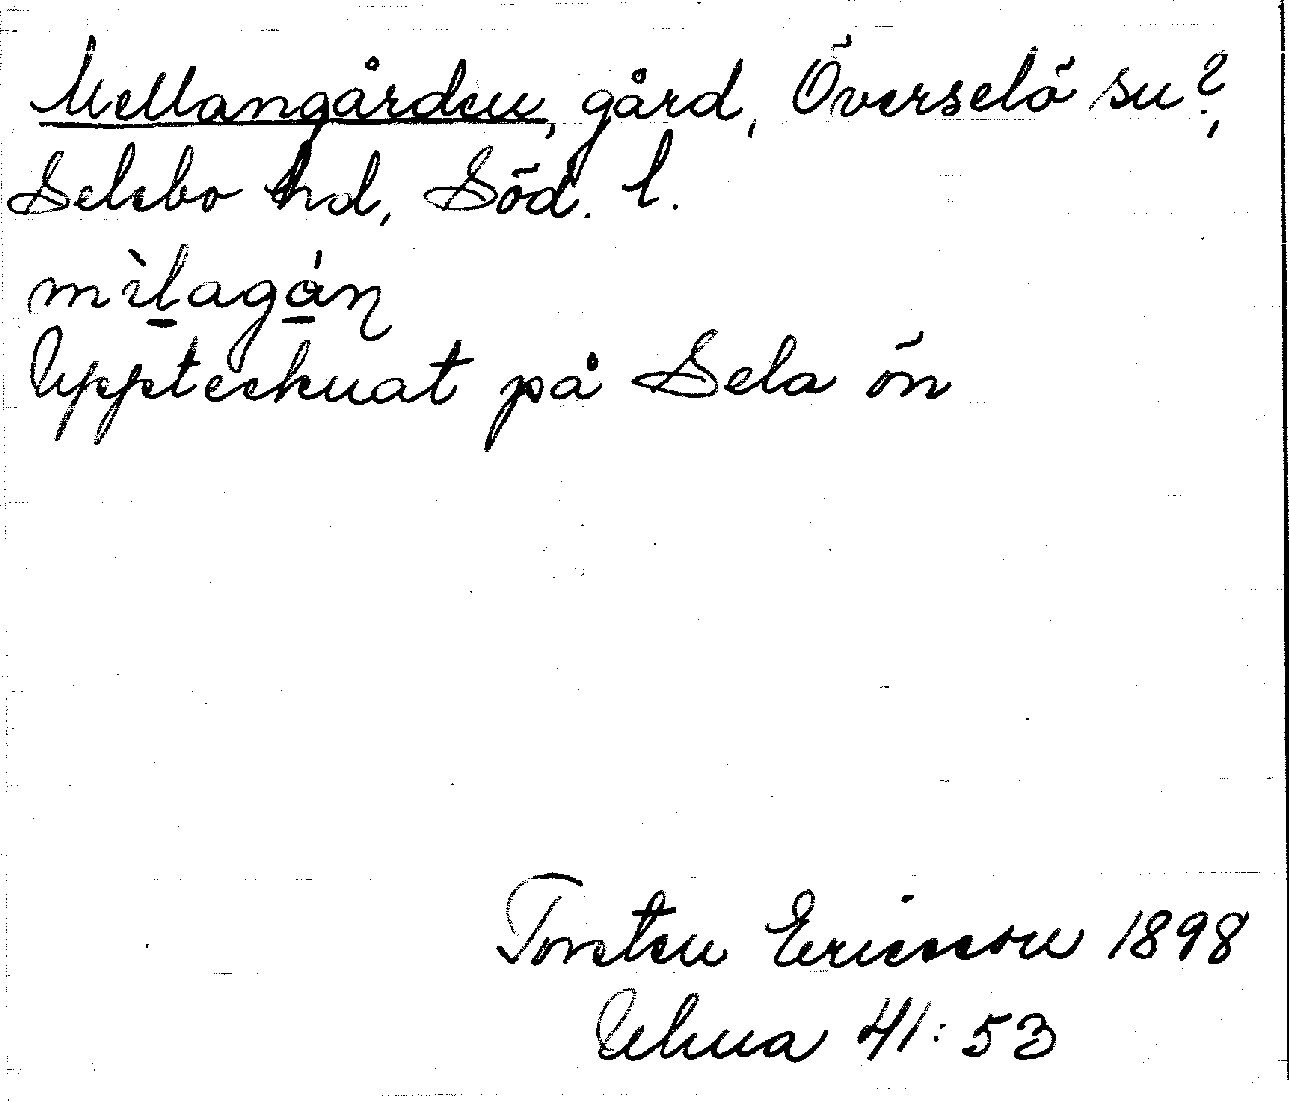 Mellangården, gård, Överselö sn?,
Selebo hd, Söd. l.
mìlagán
Upptecknat på Sela ön
Torsten Ericsson 1898
Uhua 41:53